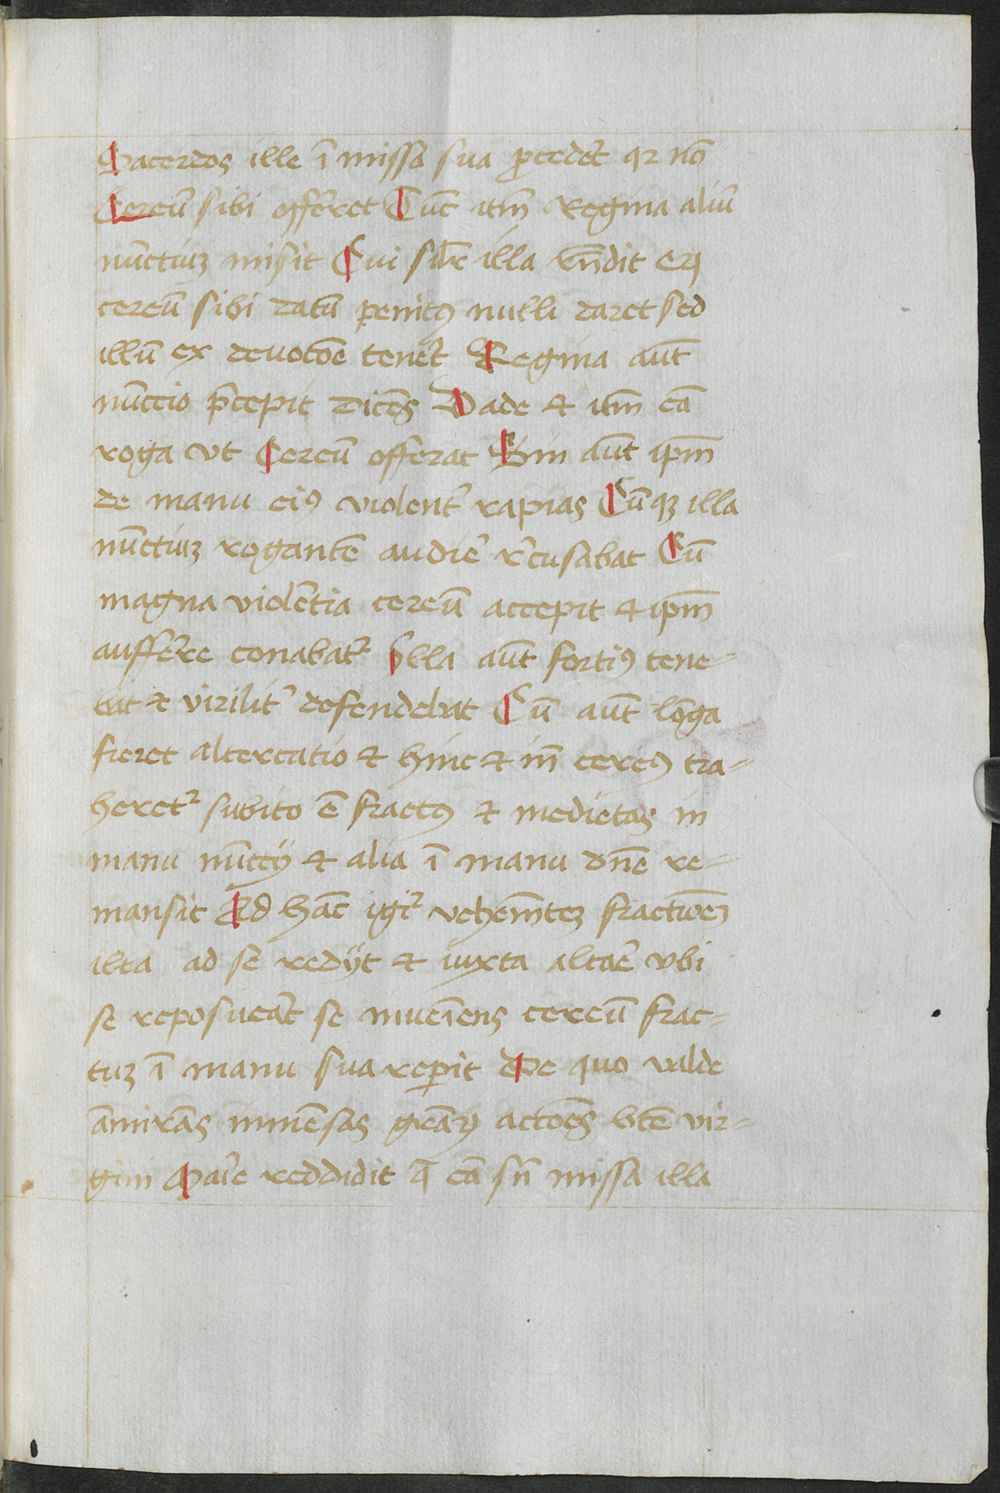 Sacerdos ille ī missa sua ꝓcedēt qꝛ nō
Cereū sibi offērret Tūc itm̄ Regina aliū
nūctiuȝ misit Cui sil̄r illa rn̄dit ꝙ
cereū sibi datū penitꝰ nulli daret sed
illū ex deuotōe tenēt Regina aūt
nūctio p̄cepit dicēs Vade ⁊ itm̄ eā
roga vt Cereū offerat Sin aūt ipm̄
de manu eiꝰ violent᷑ rapias Cūqȝ illa
nūctiuȝ rogantē audir᷑ rᷓcusabat Cū
magna violētia cereū accepit ⁊ ipm̄
aufferre conabat᷑ Illa aūt fortiꝰ tene-
bat ⁊ virilit᷑ defendebat Cū aūt lōga
fieret altercatio ⁊ hinc ⁊ in̄ cereꝰ tra-
heret᷑ subito ē fractꝰ ⁊ medietas in
manu nūctij ⁊ alia ī manu dn̄e re-
mansit Ad hāc igit᷑ vehem̄teȝ fractiōeȝ
ilta ad se redijt ⁊ iuxta altāe vbi
se reposuēat se inueīens cereū frac-
tuȝ ī manu sua reperit De quo valde
āmirās inmēsas grāꝝ actōēs btē vir-
gini Maīe reddidit q̄ eā sn̄ missa illa